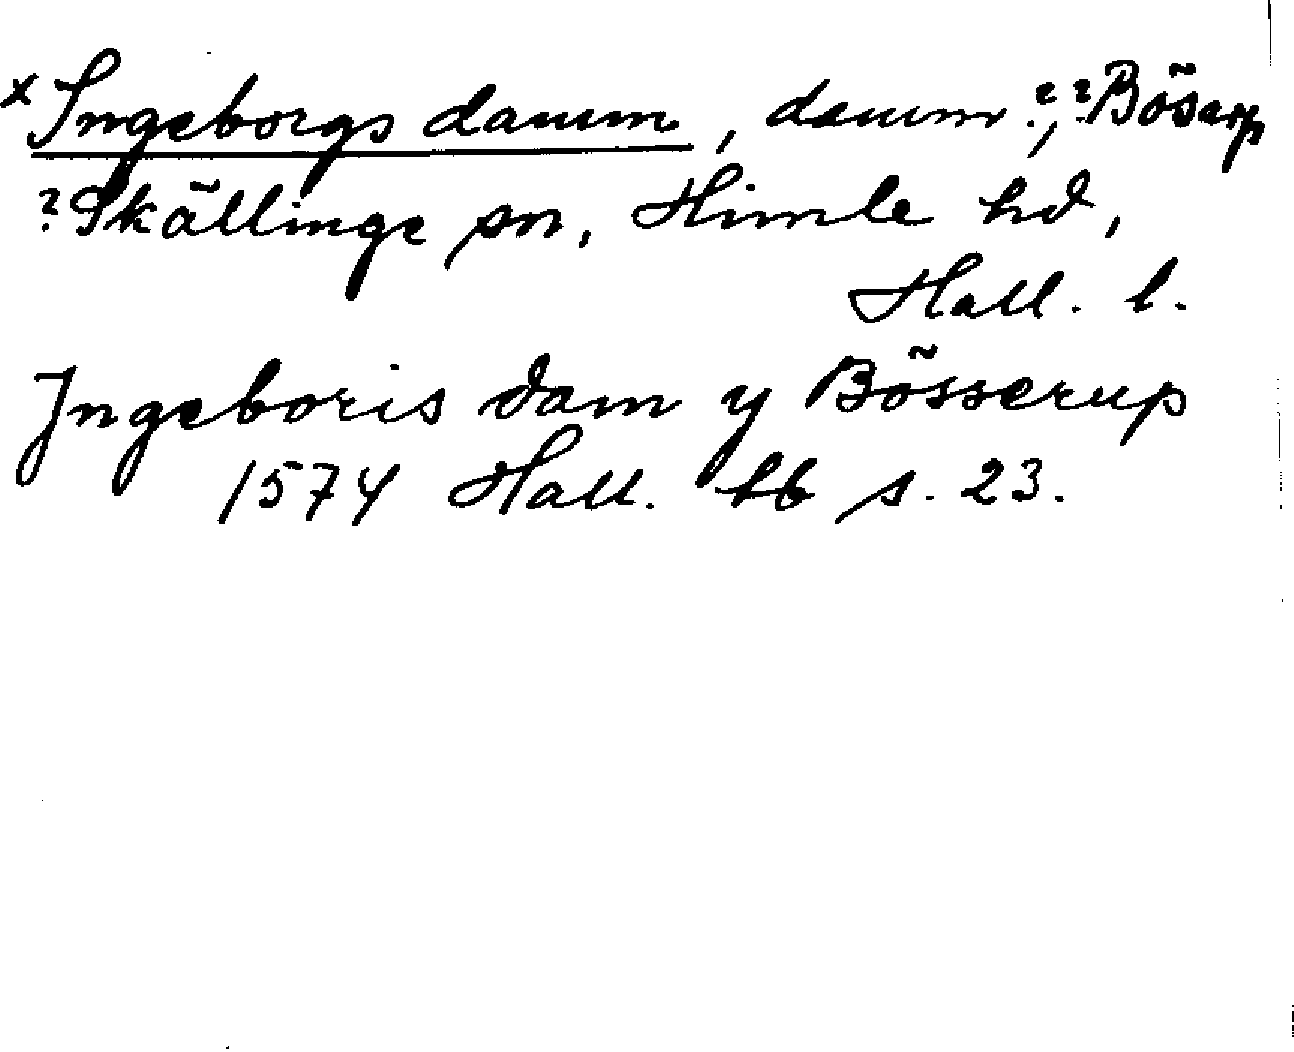 x Ingeborgs damm, damm?, ?Böserp
?Skällinge sn, Himle hd,
Hall. l.
Ingeboris dam y Bösserup
1574 Hall. lb s. 23.